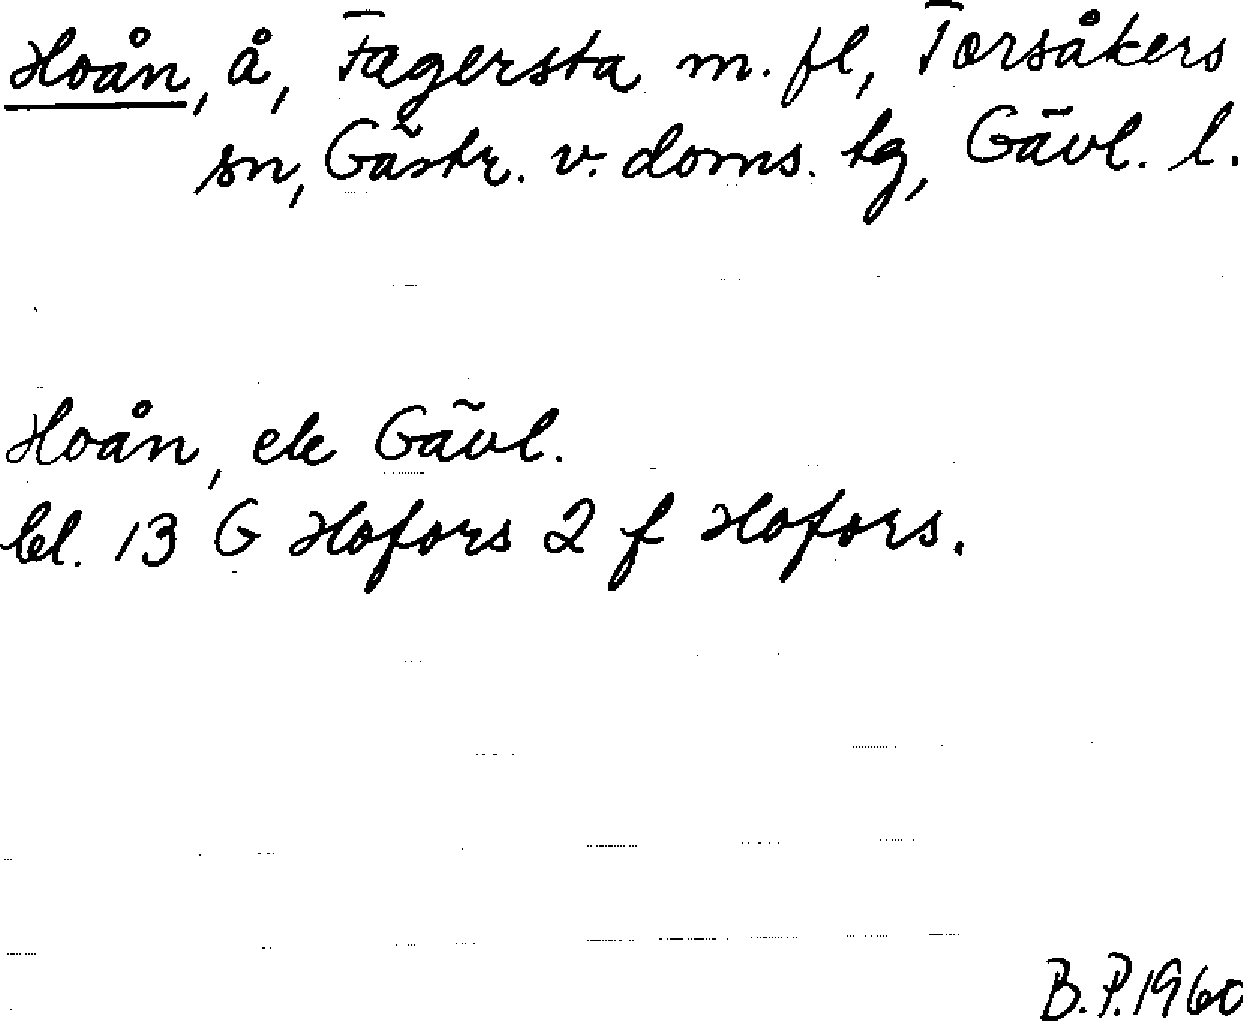 Hoån, å, Fagersta m. fl, Torsåkers
sn, Gästr. v. doms. tg, Gävl. l.
Hoån, ek Gävl.
bl. 13 G Hofors 2 f Hofors.
B.P. 1960